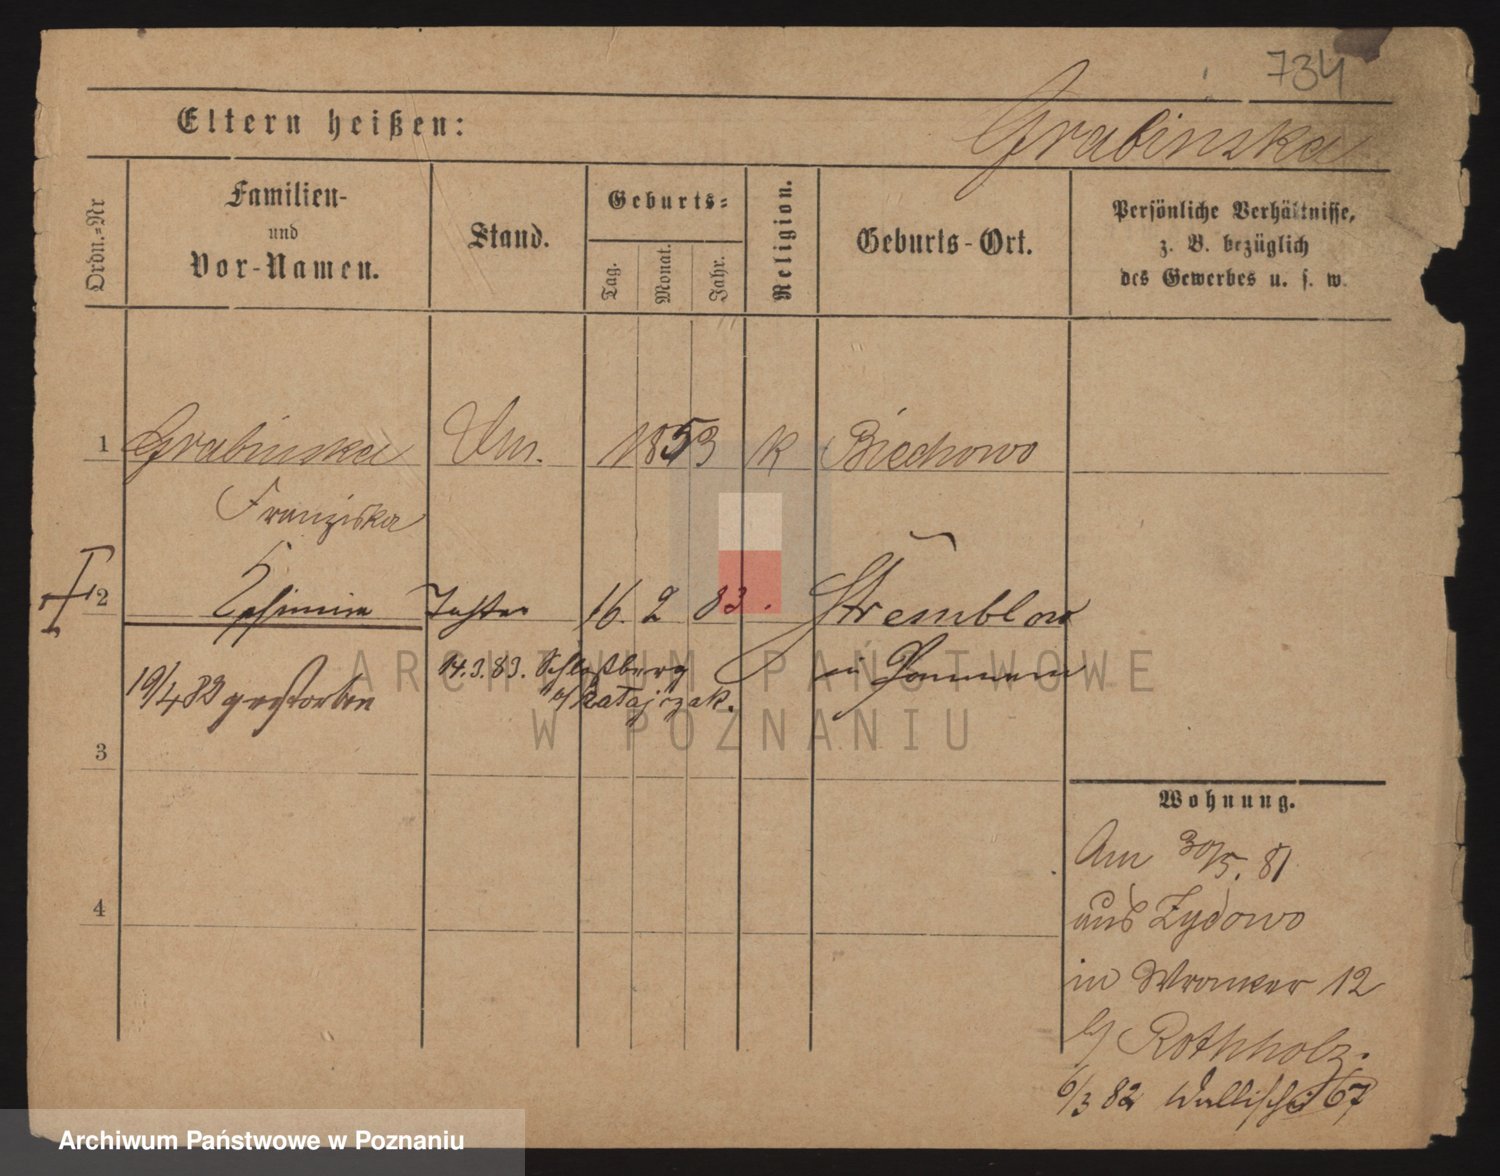 734
Eltern heißen:
Grabinska
Ordn.-Nr
Familien-
und
Vor-Namen.
Stand.
Geburts-
Tag.
Monat.
Jahr.
Religion.
Geburts-Ort.
Persönliche Verhältnisse,
z. B. bezüglich
des Gewerbes u. s. w.
1 Grabinska Um. 1853 K Biechowo
Franziska
2 Tochter 16. 2 83. Stremblow
14.3.83. Schloßberg in Pommern
19/4 83 gestorben b/ Ratajczak.
3
4
Wohnung.
Am 30/5. 81
aus Zydowo
in Wronker 12
b/ Rothholz.
6/3 82 Wallischei 67
ARCHIWUM PAŃSTWOWE
W POZNANIU
Archiwum Państwowe w Poznaniu